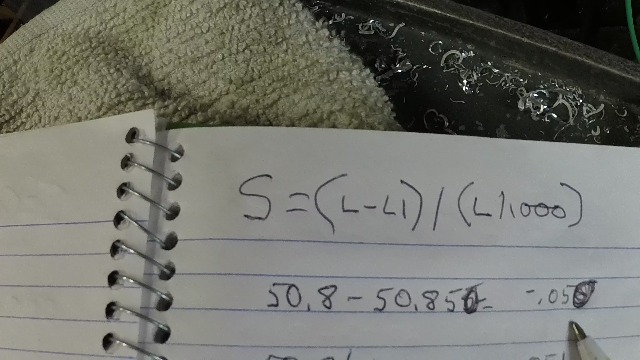 S = (L-L1) / (L1.000)
50.8 - 50.850 - -.050